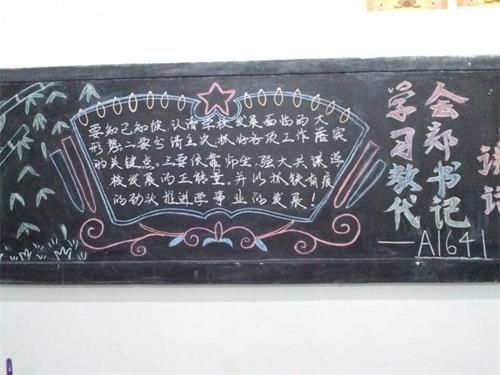 要知己知彼,认清学校发展面临的大
形势二要分清主次,抓好各项工作落实
的关键点,三要依靠师生,强大共谋学
校发展的正能量,并以抓铁有痕
的劲头推进学事业的发展!
学习教代
会郑书记
—A1641